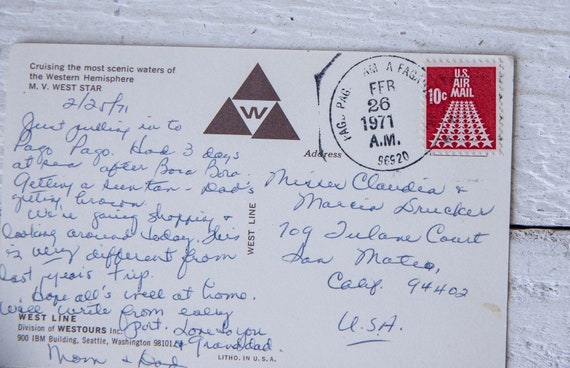 Cruising the most scenic waters of
the Western Hemisphere
M. V. WEST STAR
2/25/71
Just pulling in to
Pago Pago. Had 3 days
at sea after Bora Bora.
Getting a sun tan - Dad's
getting brown.
We're going shopping &
looking around today. This
is very different from
last year's trip.
Hope all's well at home.
Will write from every
port. Love to you
& Granddad.
Mom & Dad
WEST LINE
Division of WESTOURS Inc.
900 IBM Building, Seattle, Washington 98101
W
WEST LINE
LITHO. IN U.S.A.
Address
PAGO PAGO
FEB
26
1971
A.M.
96920
U.S.
AIR
MAIL
10c
Misses Claudia &
Marcia Drucker
709 Tulane Court
San Mateo,
Calif. 94402
U.S.A.